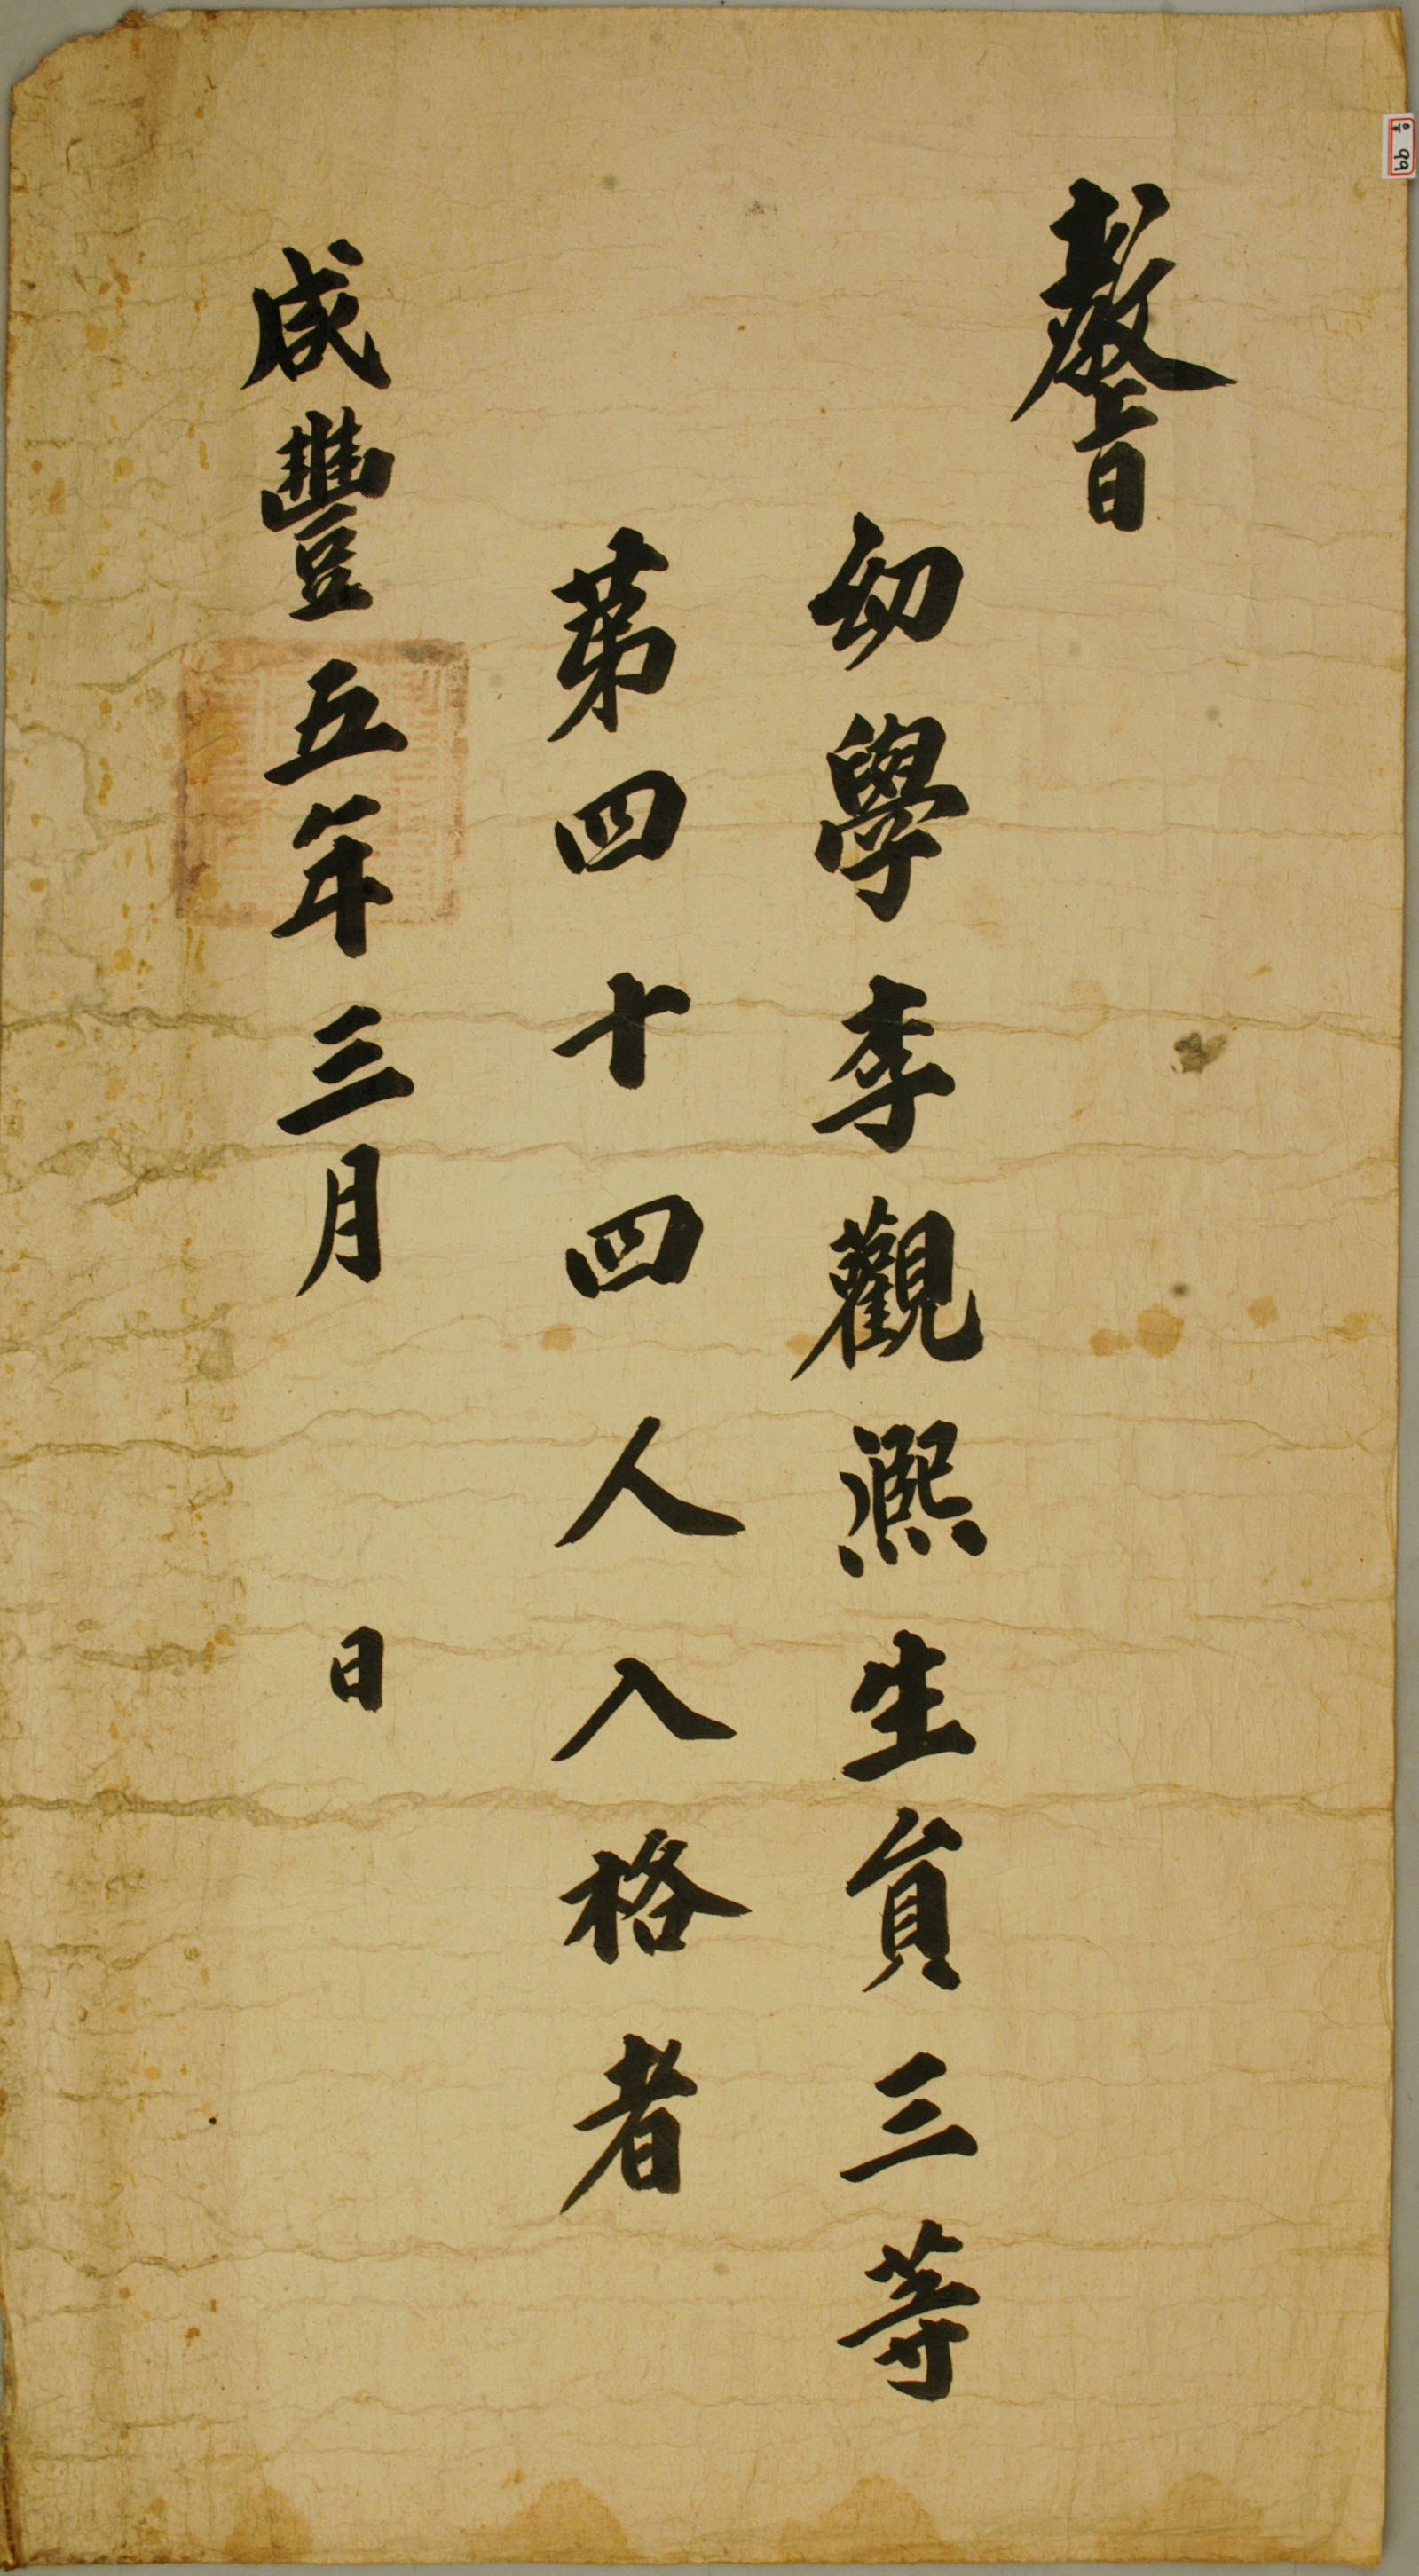 敎旨
幼學李觀熙生員三等
第四十四人入格者
咸豐五年三月 日
99